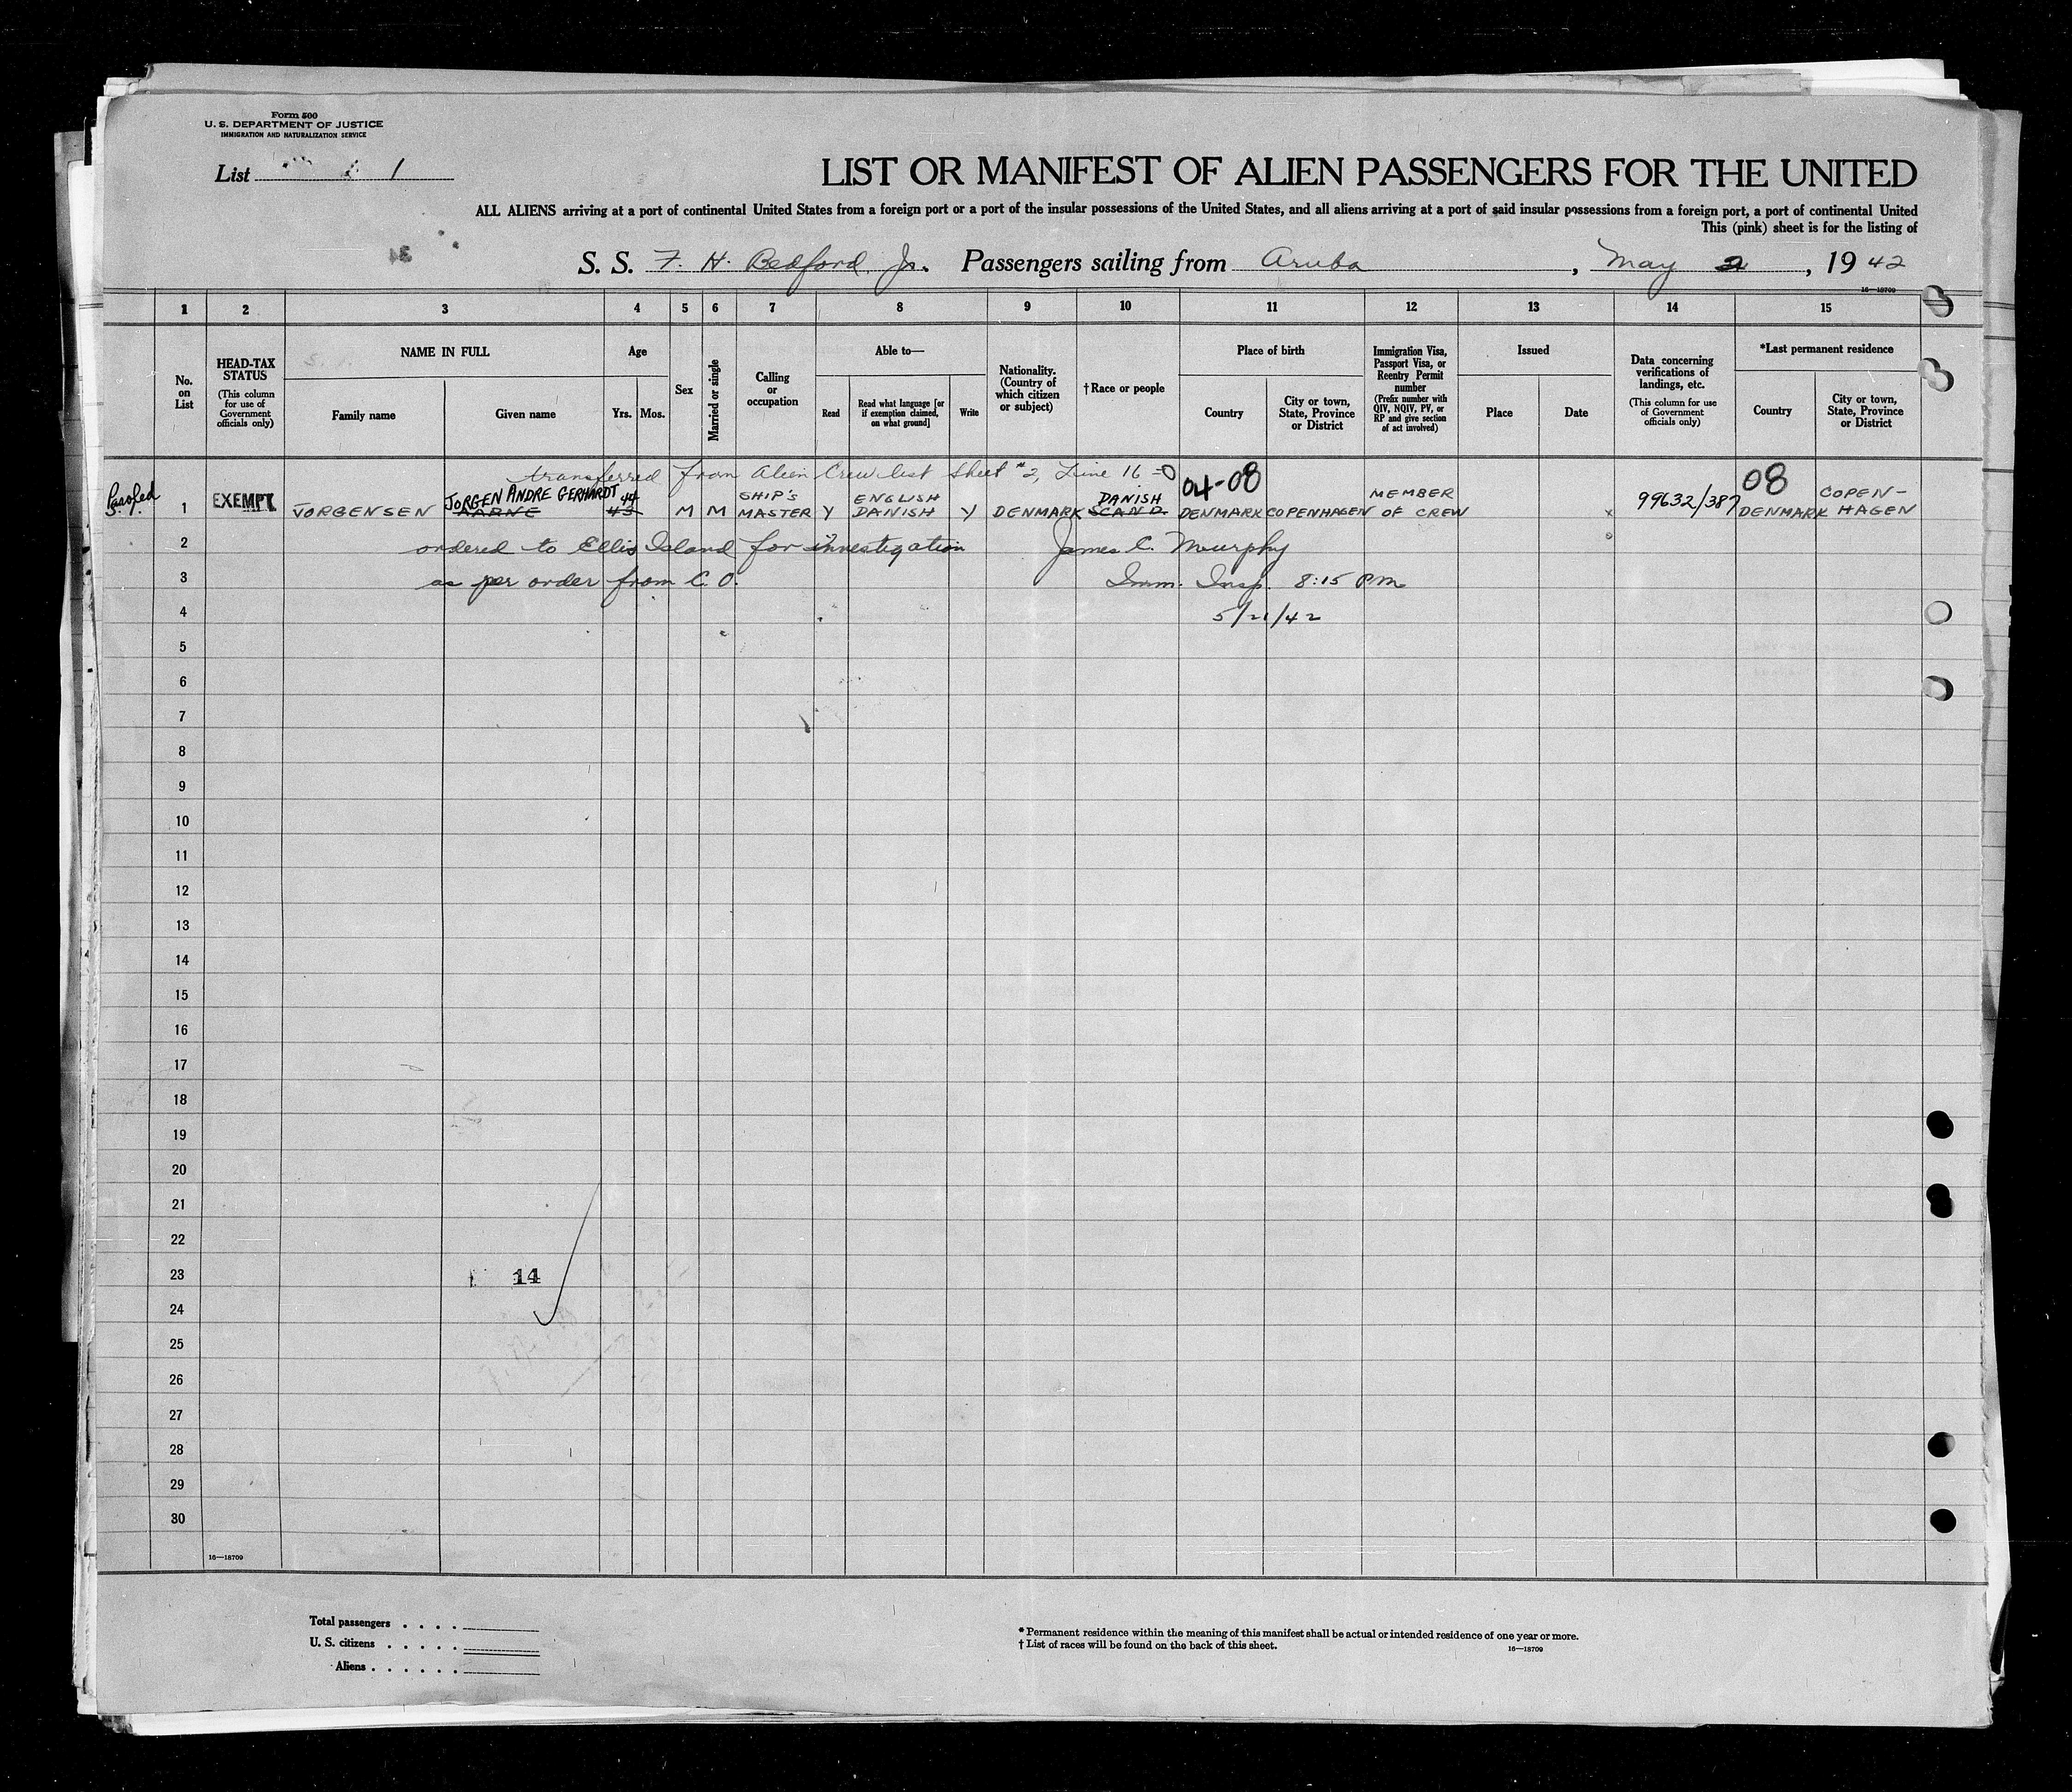 Form 500
U. S. DEPARTMENT OF JUSTICE
IMMIGRATION AND NATURALIZATION SERVICE
List 1
LIST OR MANIFEST OF ALIEN PASSENGERS FOR THE UNITED
ALL ALIENS arriving at a port of continental United States from a foreign port or a port of the insular possessions of the United States, and all aliens arriving at a port of said insular possessions from a foreign port, a port of continental United
This (pink) sheet is for the listing of
S. S. F. H. Bedford. Jr. Passengers sailing from Aruba, May 2, 1942
16—18709
1 2 3 4 5 6 7 8 9 10 11 12 13 14 15
No. on List
HEAD-TAX STATUS
(This column for use of Government officials only)
NAME IN FULL
Family name
Given name
Age
Yrs.
Mos.
Sex
Married or single
Calling or occupation
Able to—
Read
Read what language [or if exemption claimed, on what ground]
Write
Nationality. (Country of which citizen or subject)
†Race or people
Place of birth
Country
City or town, State, Province or District
Immigration Visa, Passport Visa, or Reentry Permit number
(Prefix number with QIV, NQIV, PV, or RP and give section of act involved)
Issued
Place
Date
Data concerning verifications of landings, etc.
(This column for use of Government officials only)
*Last permanent residence
Country
City or town, State, Province or District
transferred from Alien Crew list sheet #2, Line 16
04-08
08
1 EXEMPT JORGENSEN JORGEN ANDRE GERHARDT AARNE 44 43 M M SHIP'S MASTER Y ENGLISH DANISH Y DENMARK DANISH SCAND. DENMARK COPENHAGEN MEMBER OF CREW 99632/387 DENMARK COPEN-HAGEN
2 ordered to Ellis Island for investigation James C. Murphy
3 as per order from C.O. Imm. Insp. 8:15 PM
4 5/21/42
5
6
7
8
9
10
11
12
13
14
15
16
17
18
19
20
21
22
23 14
24
25
26
27
28
29
30
16—18709
Total passengers
U. S. citizens
Aliens
* Permanent residence within the meaning of this manifest shall be actual or intended residence of one year or more.
† List of races will be found on the back of this sheet.
16—18709